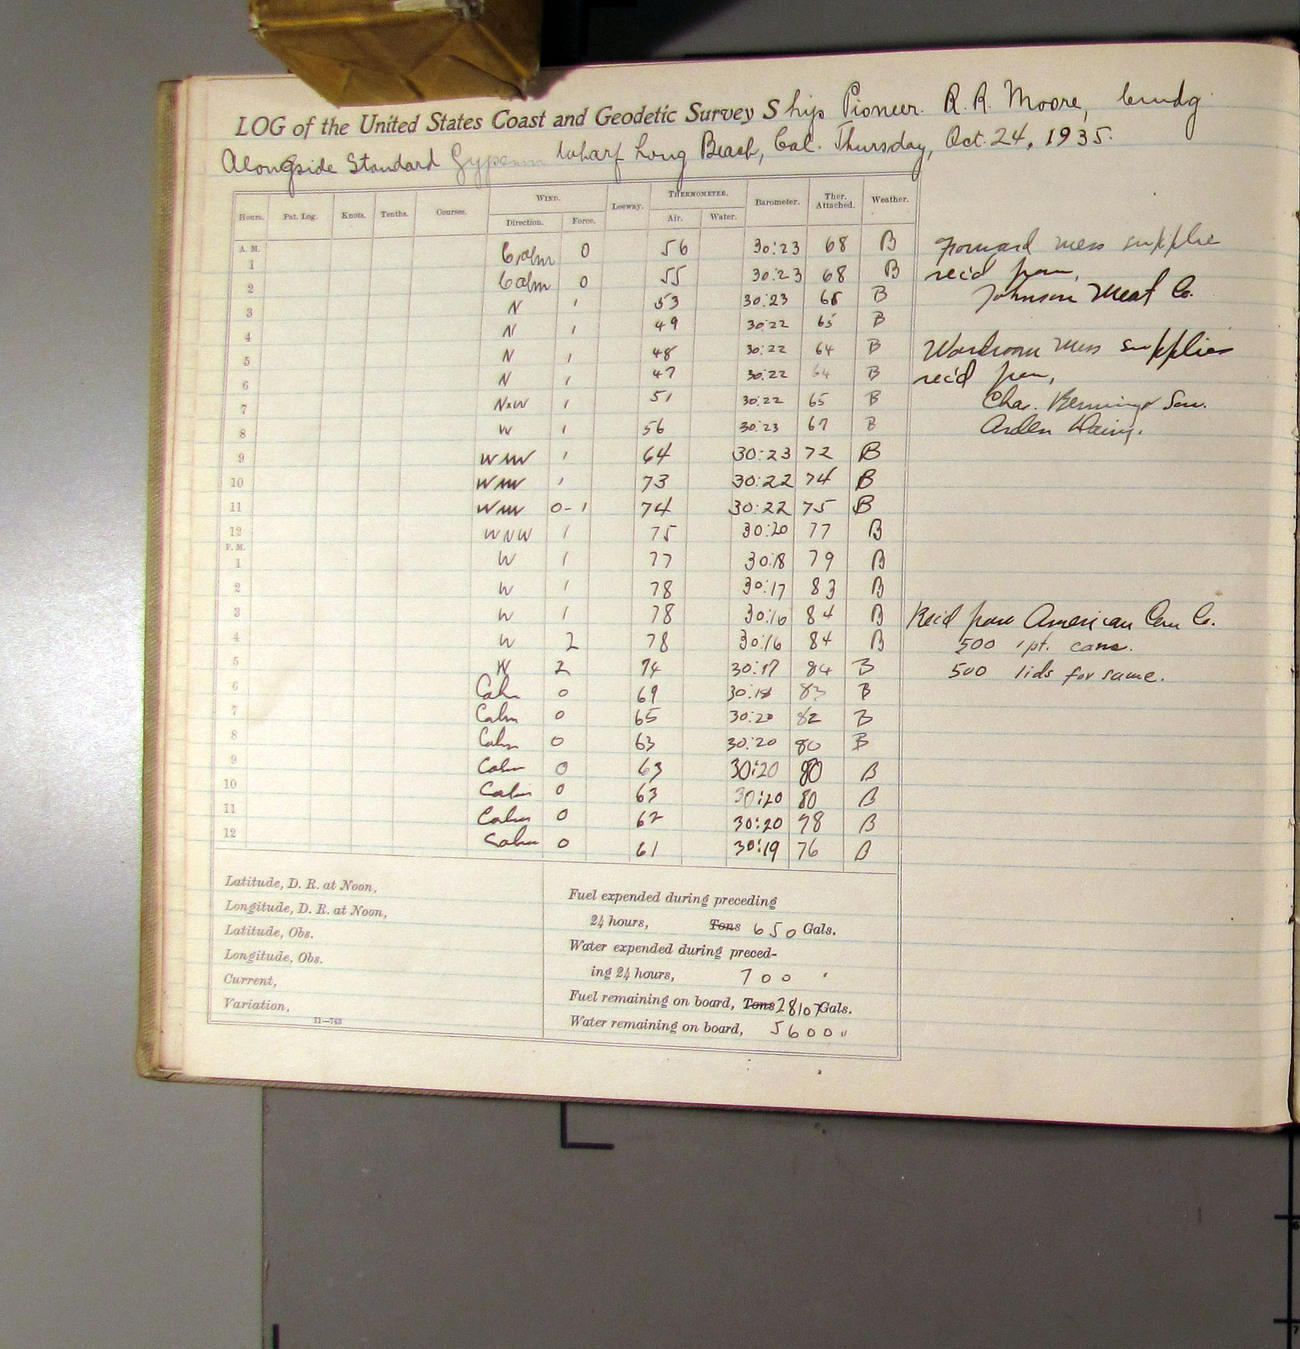 LOG of the United States Coast and Geodetic Survey Ship Pioneer. R. R. Moore, Cmdg.
Alongside Standard Gypsum Wharf Long Beach, Cal. Thursday, Oct. 24, 1935.
Hours. Pat. Log. Knots. Tenths. Courses. WIND. Direction. Force. Leeway. THERMOMETER. Air. Water. Barometer. Ther. Attached. Weather.
A. M.
1 Calm 0 56 30:23 68 B Forward mess supplie
2 Calm 0 55 30:23 68 B rec'd from,
3 N 1 53 30:23 66 B Johnson Meat Co.
4 N 1 49 30:22 65 B
5 N 1 48 30:22 64 B Wardroom mess supplies
6 N 1 47 30:22 64 B rec'd from,
7 NxW 1 51 30:22 65 B Chas. & Son.
8 W 1 56 30:23 67 B Arden Dairy.
9 WNW 1 64 30:23 72 B
10 WNW 1 73 30:22 74 B
11 WNW 0-1 74 30:22 75 B
12 WNW 1 75 30:20 77 B
P. M.
1 W 1 77 30:18 79 B
2 W 1 78 30:17 83 B
3 W 1 78 30:16 84 B Rec'd from American Can Co.
4 W 2 78 30:16 84 B 500 1 pt. cans.
5 W 2 74 30:17 84 B 500 lids for same.
6 Calm 0 69 30:18 83 B
7 Calm 0 65 30:20 82 B
8 Calm 0 63 30:20 80 B
9 Calm 0 63 30:20 80 B
10 Calm 0 63 30:20 80 B
11 Calm 0 62 30:20 78 B
12 Calm 0 61 30:19 76 B
Latitude, D. R. at Noon,
Longitude, D. R. at Noon,
Latitude, Obs.
Longitude, Obs.
Current,
Variation,
11—783
Fuel expended during preceding
24 hours, Tons 650 Gals.
Water expended during preced-
ing 24 hours, 700 "
Fuel remaining on board, Tons 28107 Gals.
Water remaining on board, 5600 "
6
7